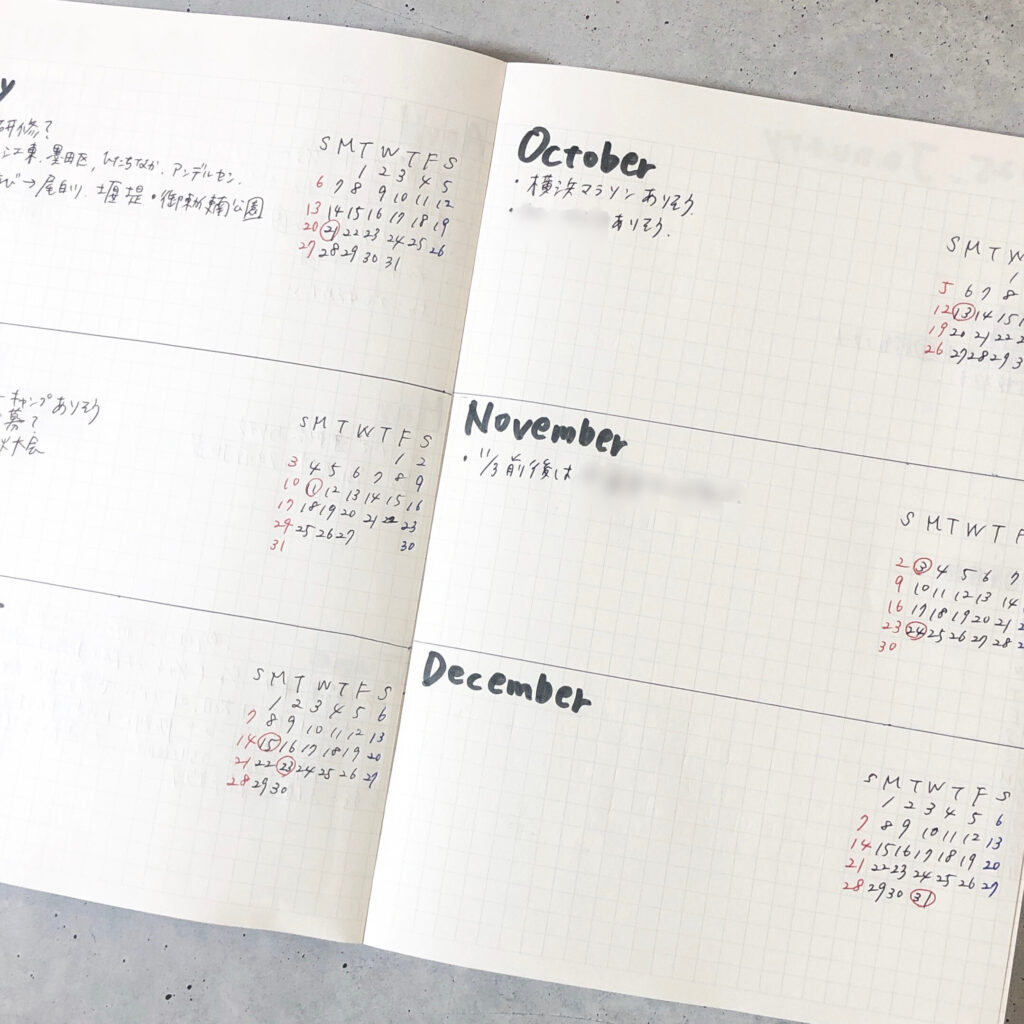 y
研修?
江東.墨田区,ひたちなか.アンデルセン.
び→尾白川.堰堤・御勅使南公園
S M T W T F S
1 2 3 4 5
6 7 8 9 10 11 12
13 14 15 16 17 18 19
20 21 22 23 24 25 26
27 28 29 30 31
キャンプありそう
募?
火大会
S M T W T F S
1 2
3 4 5 6 7 8 9
10 11 12 13 14 15 16
17 18 19 20 21 22 23
24 25 26 27
30
31
S M T W T F S
1 2 3 4 5 6
7 8 9 10 11 12 13
14 15 16 17 18 19 20
21 22 23 24 25 26 27
28 29 30
October
・横浜マラソンありそう.
・ ありそう.
S M T W
1
5 6 7 8
12 13 14 15
19 20 21 22
26 27 28 29
November
・11/3前後は
S M T W T F
2 3 4 5 6 7
9 10 11 12 13 14
16 17 18 19 20 21
23 24 25 26 27 28
30
December
S M T W T F S
1 2 3 4 5 6
7 8 9 10 11 12 13
14 15 16 17 18 19 20
21 22 23 24 25 26 27
28 29 30 31